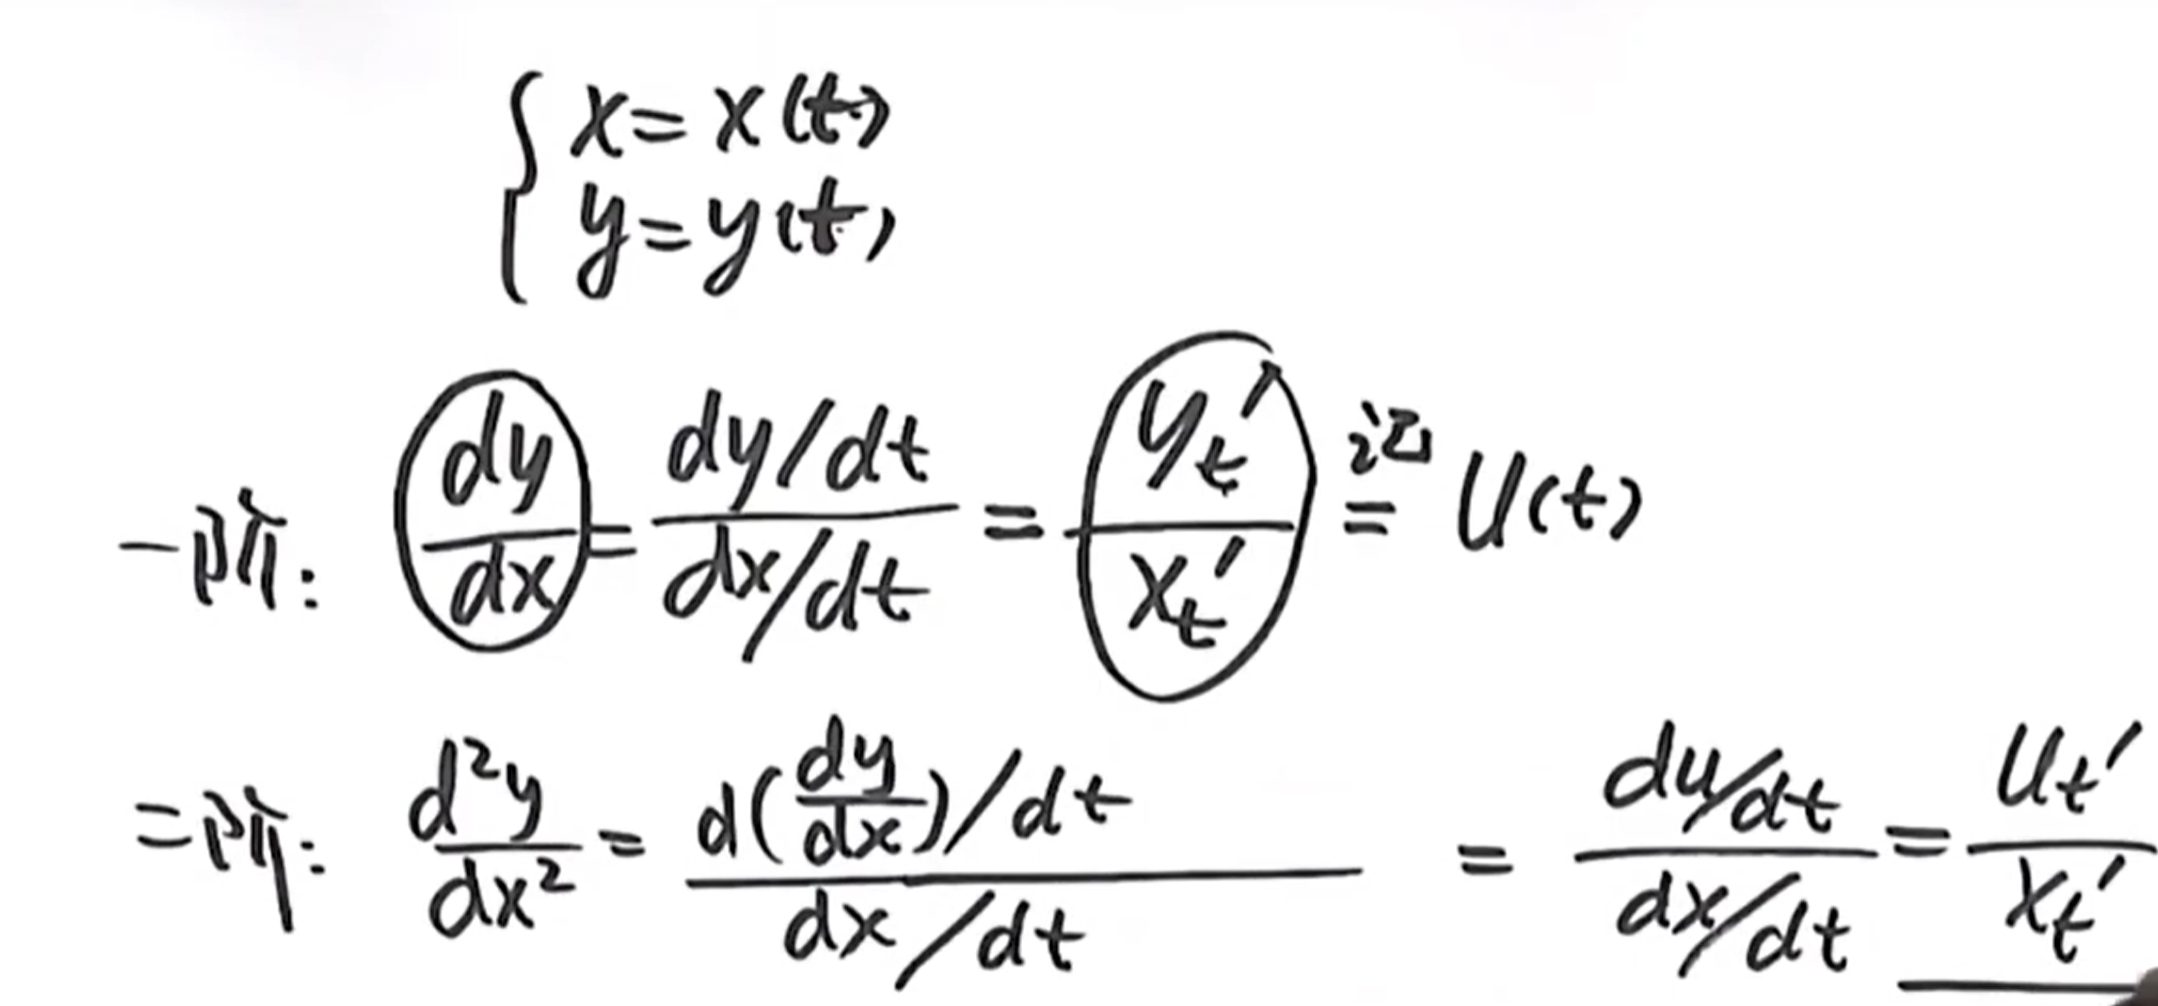 { x = x(t)
y = y(t)
一阶: dy/dx = (dy/dt)/(dx/dt) = yₜ'/xₜ' 记= u(t)
二阶: d²y/dx² = (d(dy/dx)/dt)/(dx/dt) = (du/dt)/(dx/dt) = uₜ'/xₜ'